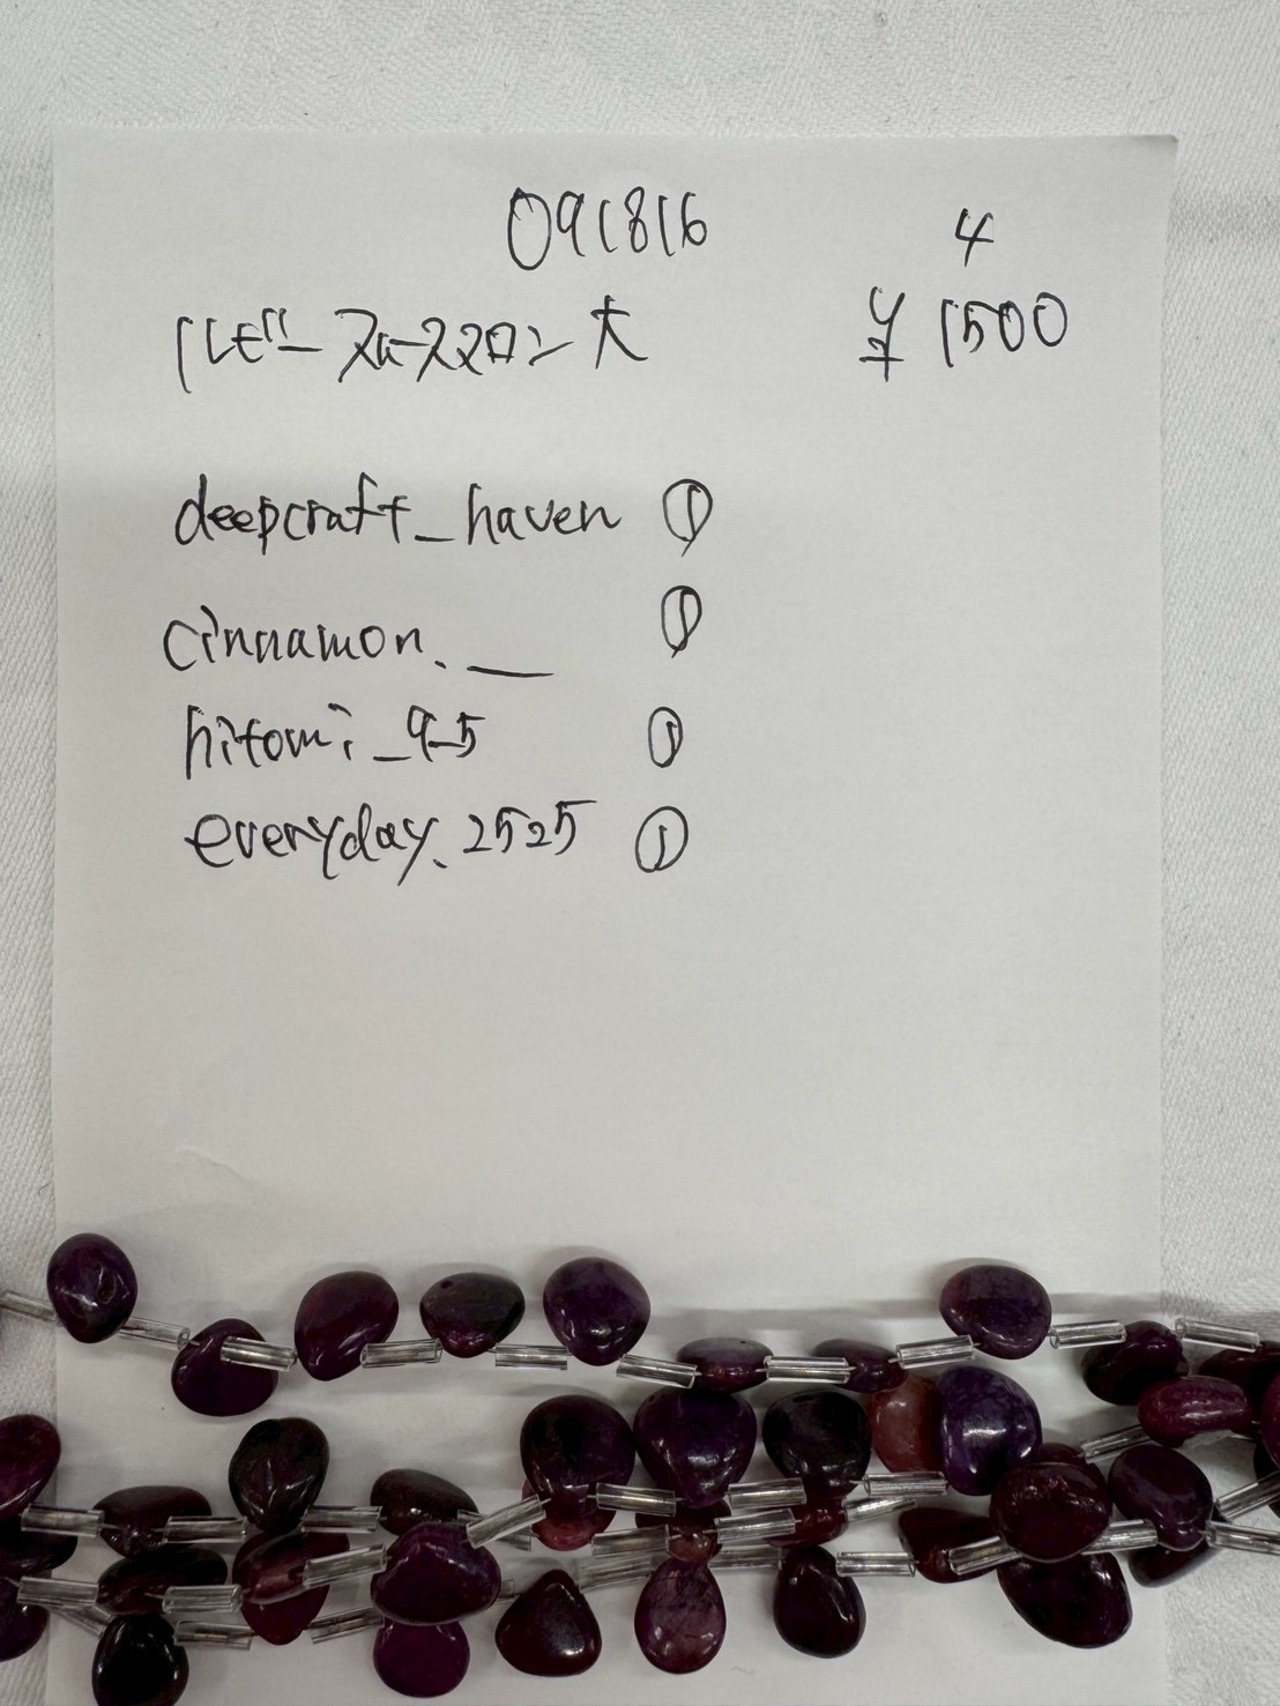 091816 4
ルビースムースマロン大 ¥1500
deepcraft_haven ①
cinnamon.__ ①
hitomi_9-5 ①
everyday.2525 ①